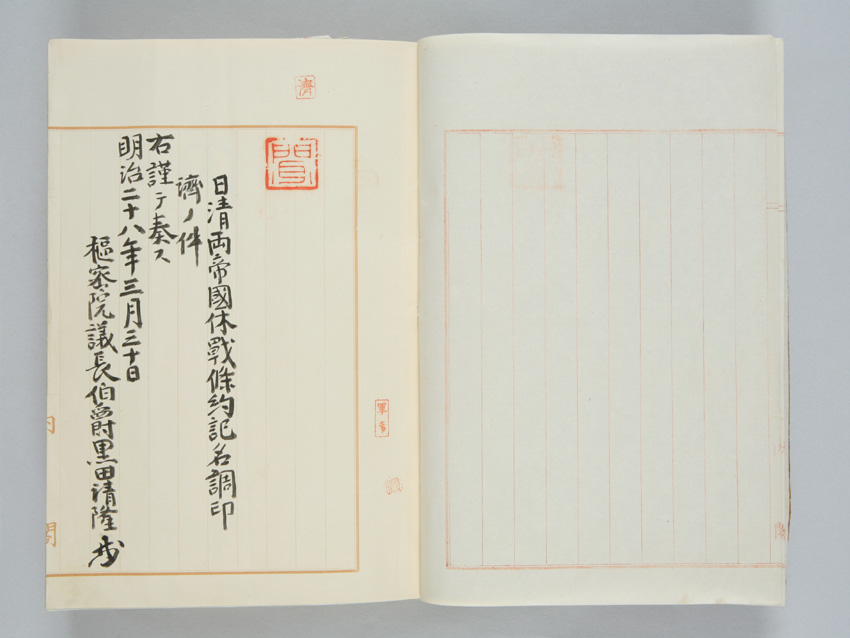 濟
聞
日清両帝國休戰條約記名調印
濟ノ件
右謹テ奏ス
明治二十八年三月三十日
樞密院議長伯爵黒田清隆
内
閣